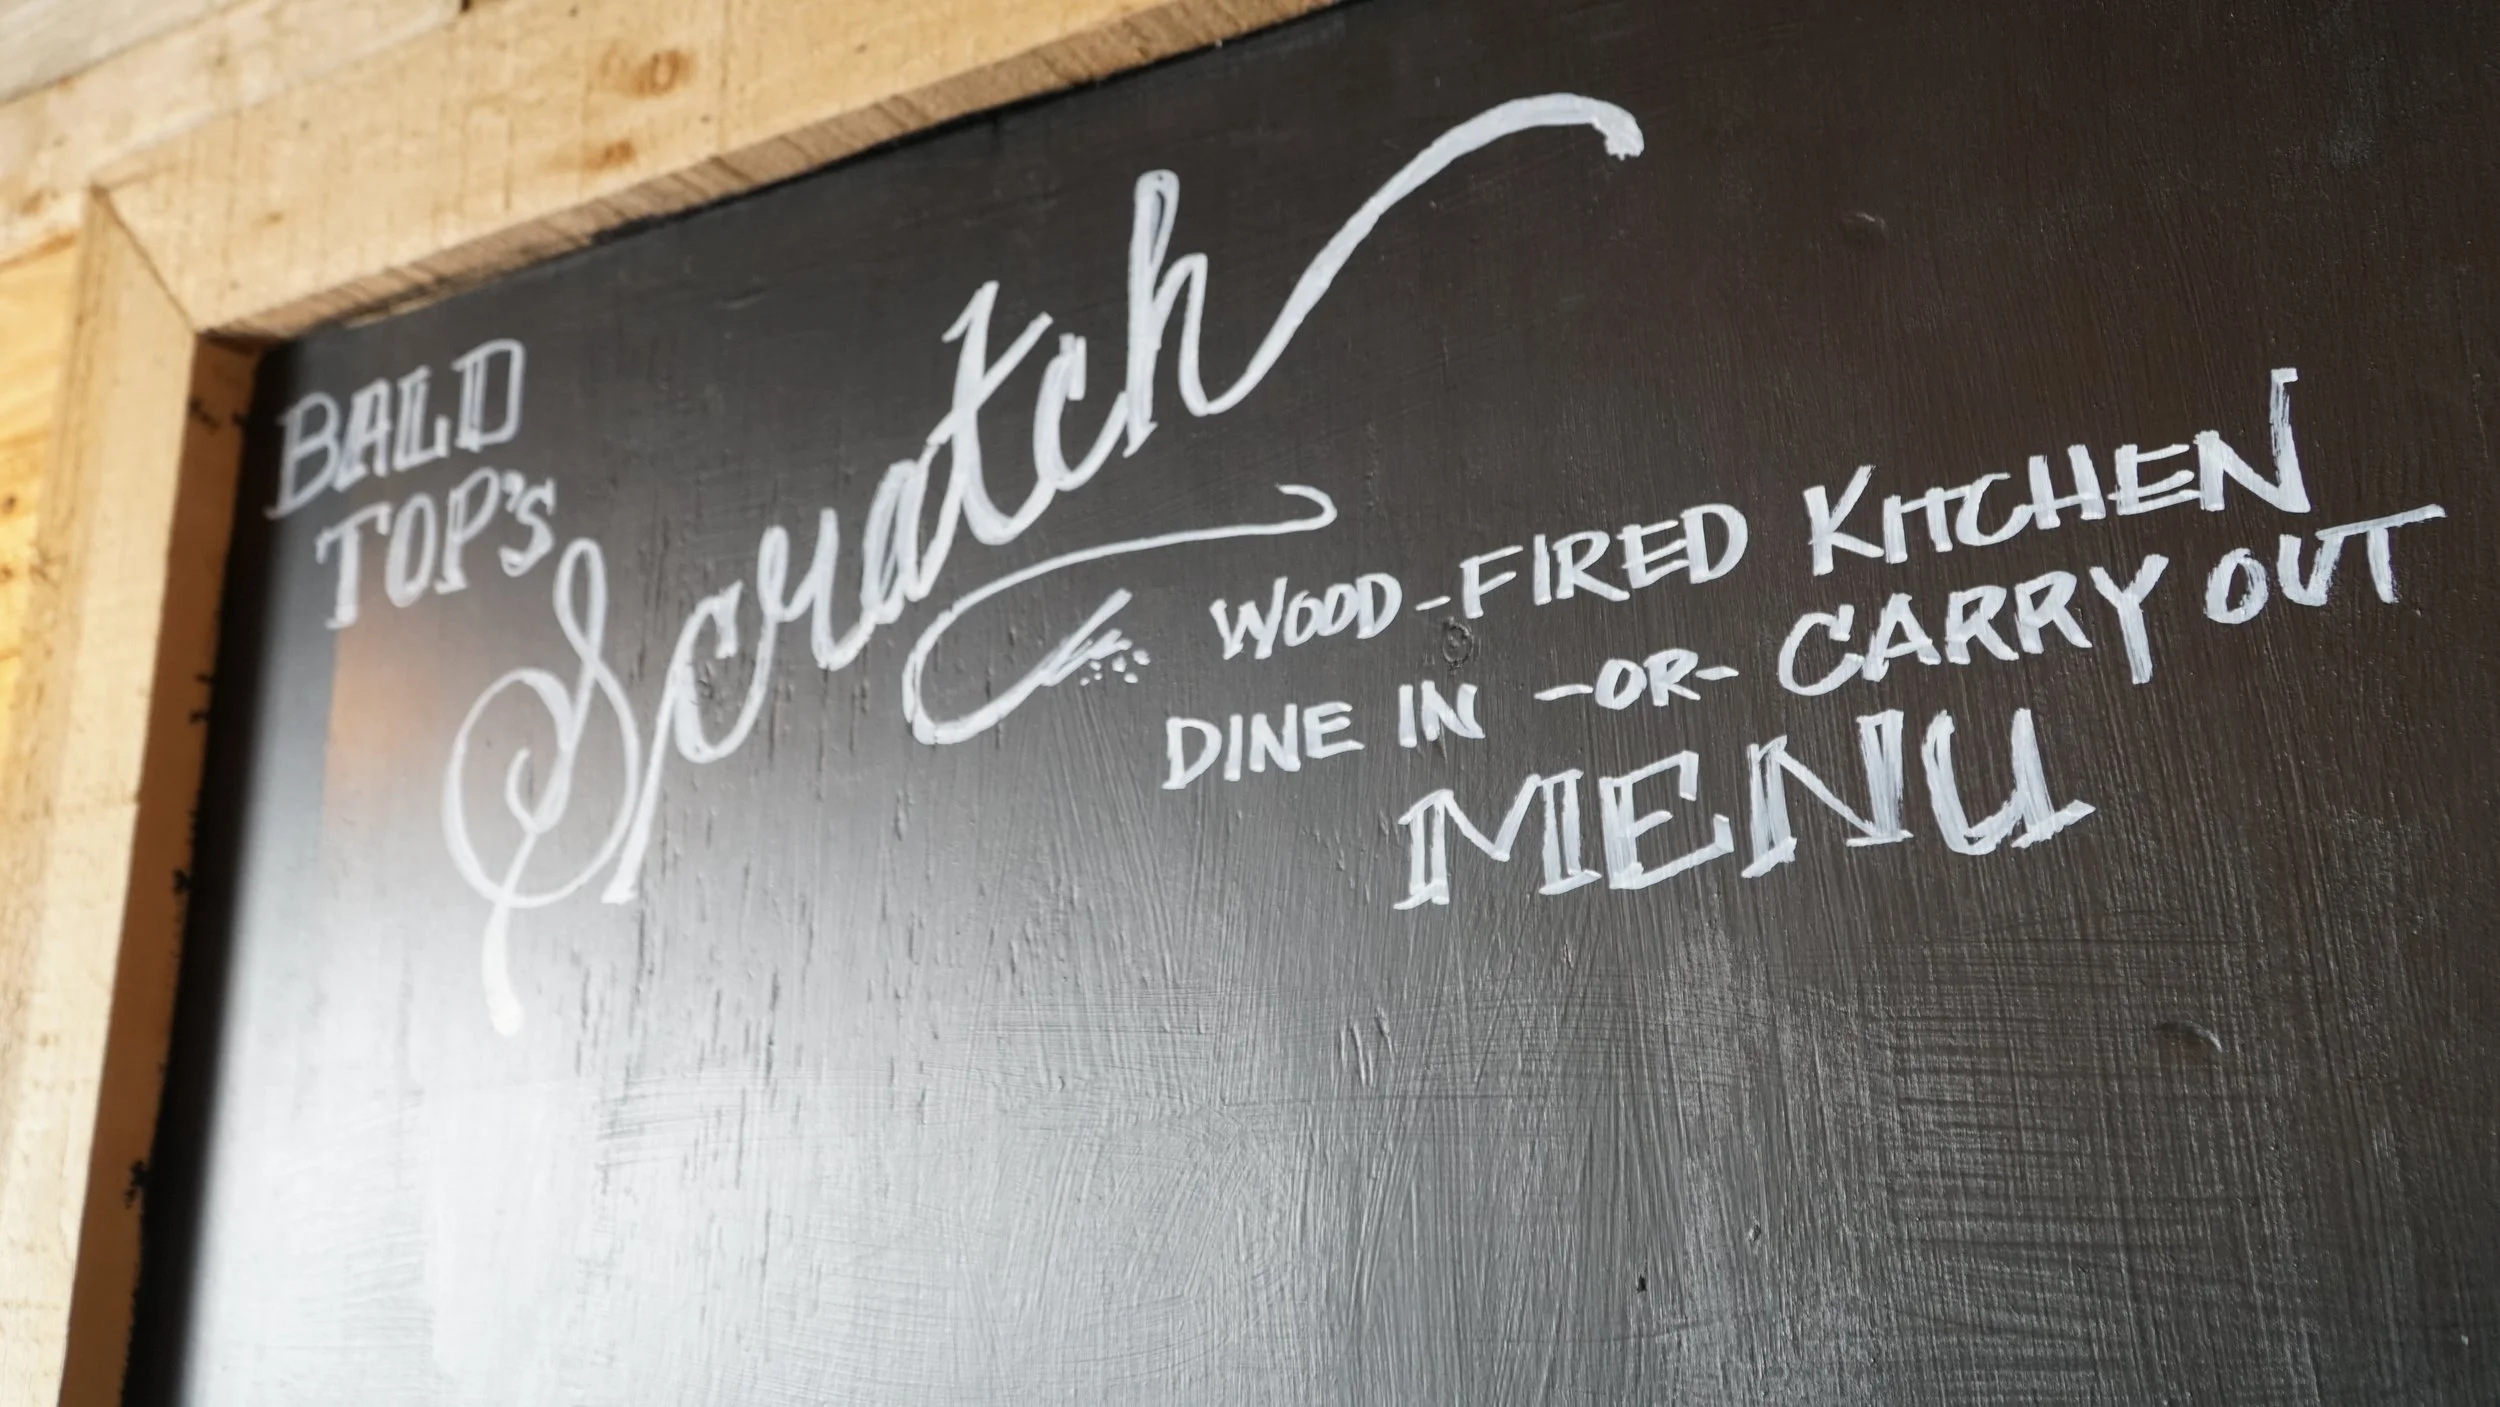 BALD
TOP'S
Scratch
WOOD-FIRED KITCHEN
DINE IN -OR- CARRY OUT
MENU